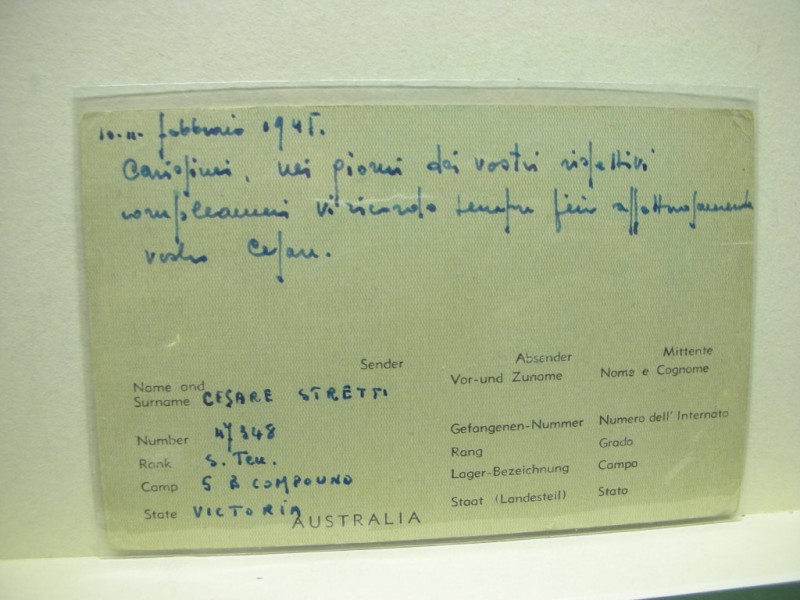 10-11- febbraio 1945.
Carissimi, nei giorni dei vostri rispettivi
compleanni vi ricordo sempre più affettuosamente
vostro Cesare.
Sender Absender Mittente
Name and Surname CESARE STRETTI Vor-und Zuname Nome e Cognome
Number 47348 Gefangenen-Nummer Numero dell' Internato
Rank S. Ten. Rang Grado
Camp 5 B COMPOUND Lager-Bezeichnung Campo
State VICTORIA Staat (Landesteil) Stato
AUSTRALIA